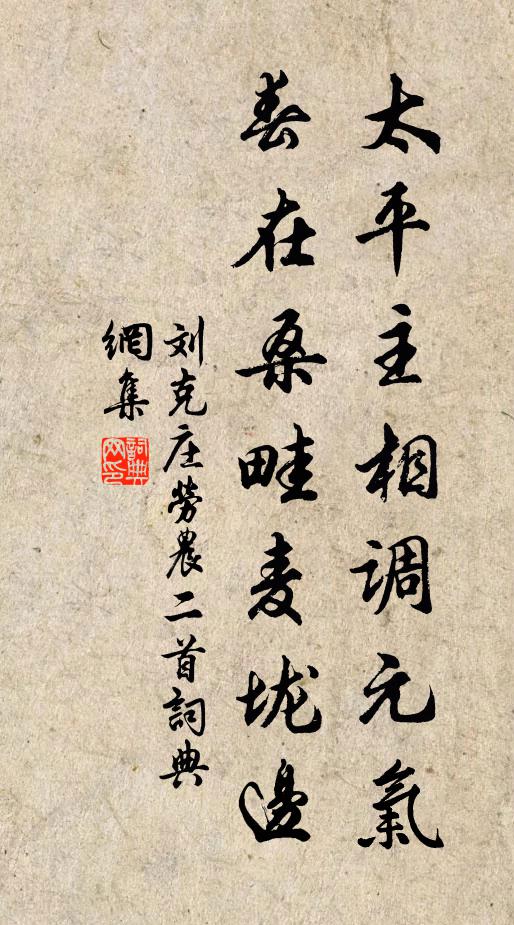 太平主相调元氣
春在桑畦麦垅邊
刘克庄勞農二首詞典
網集
詞典网印